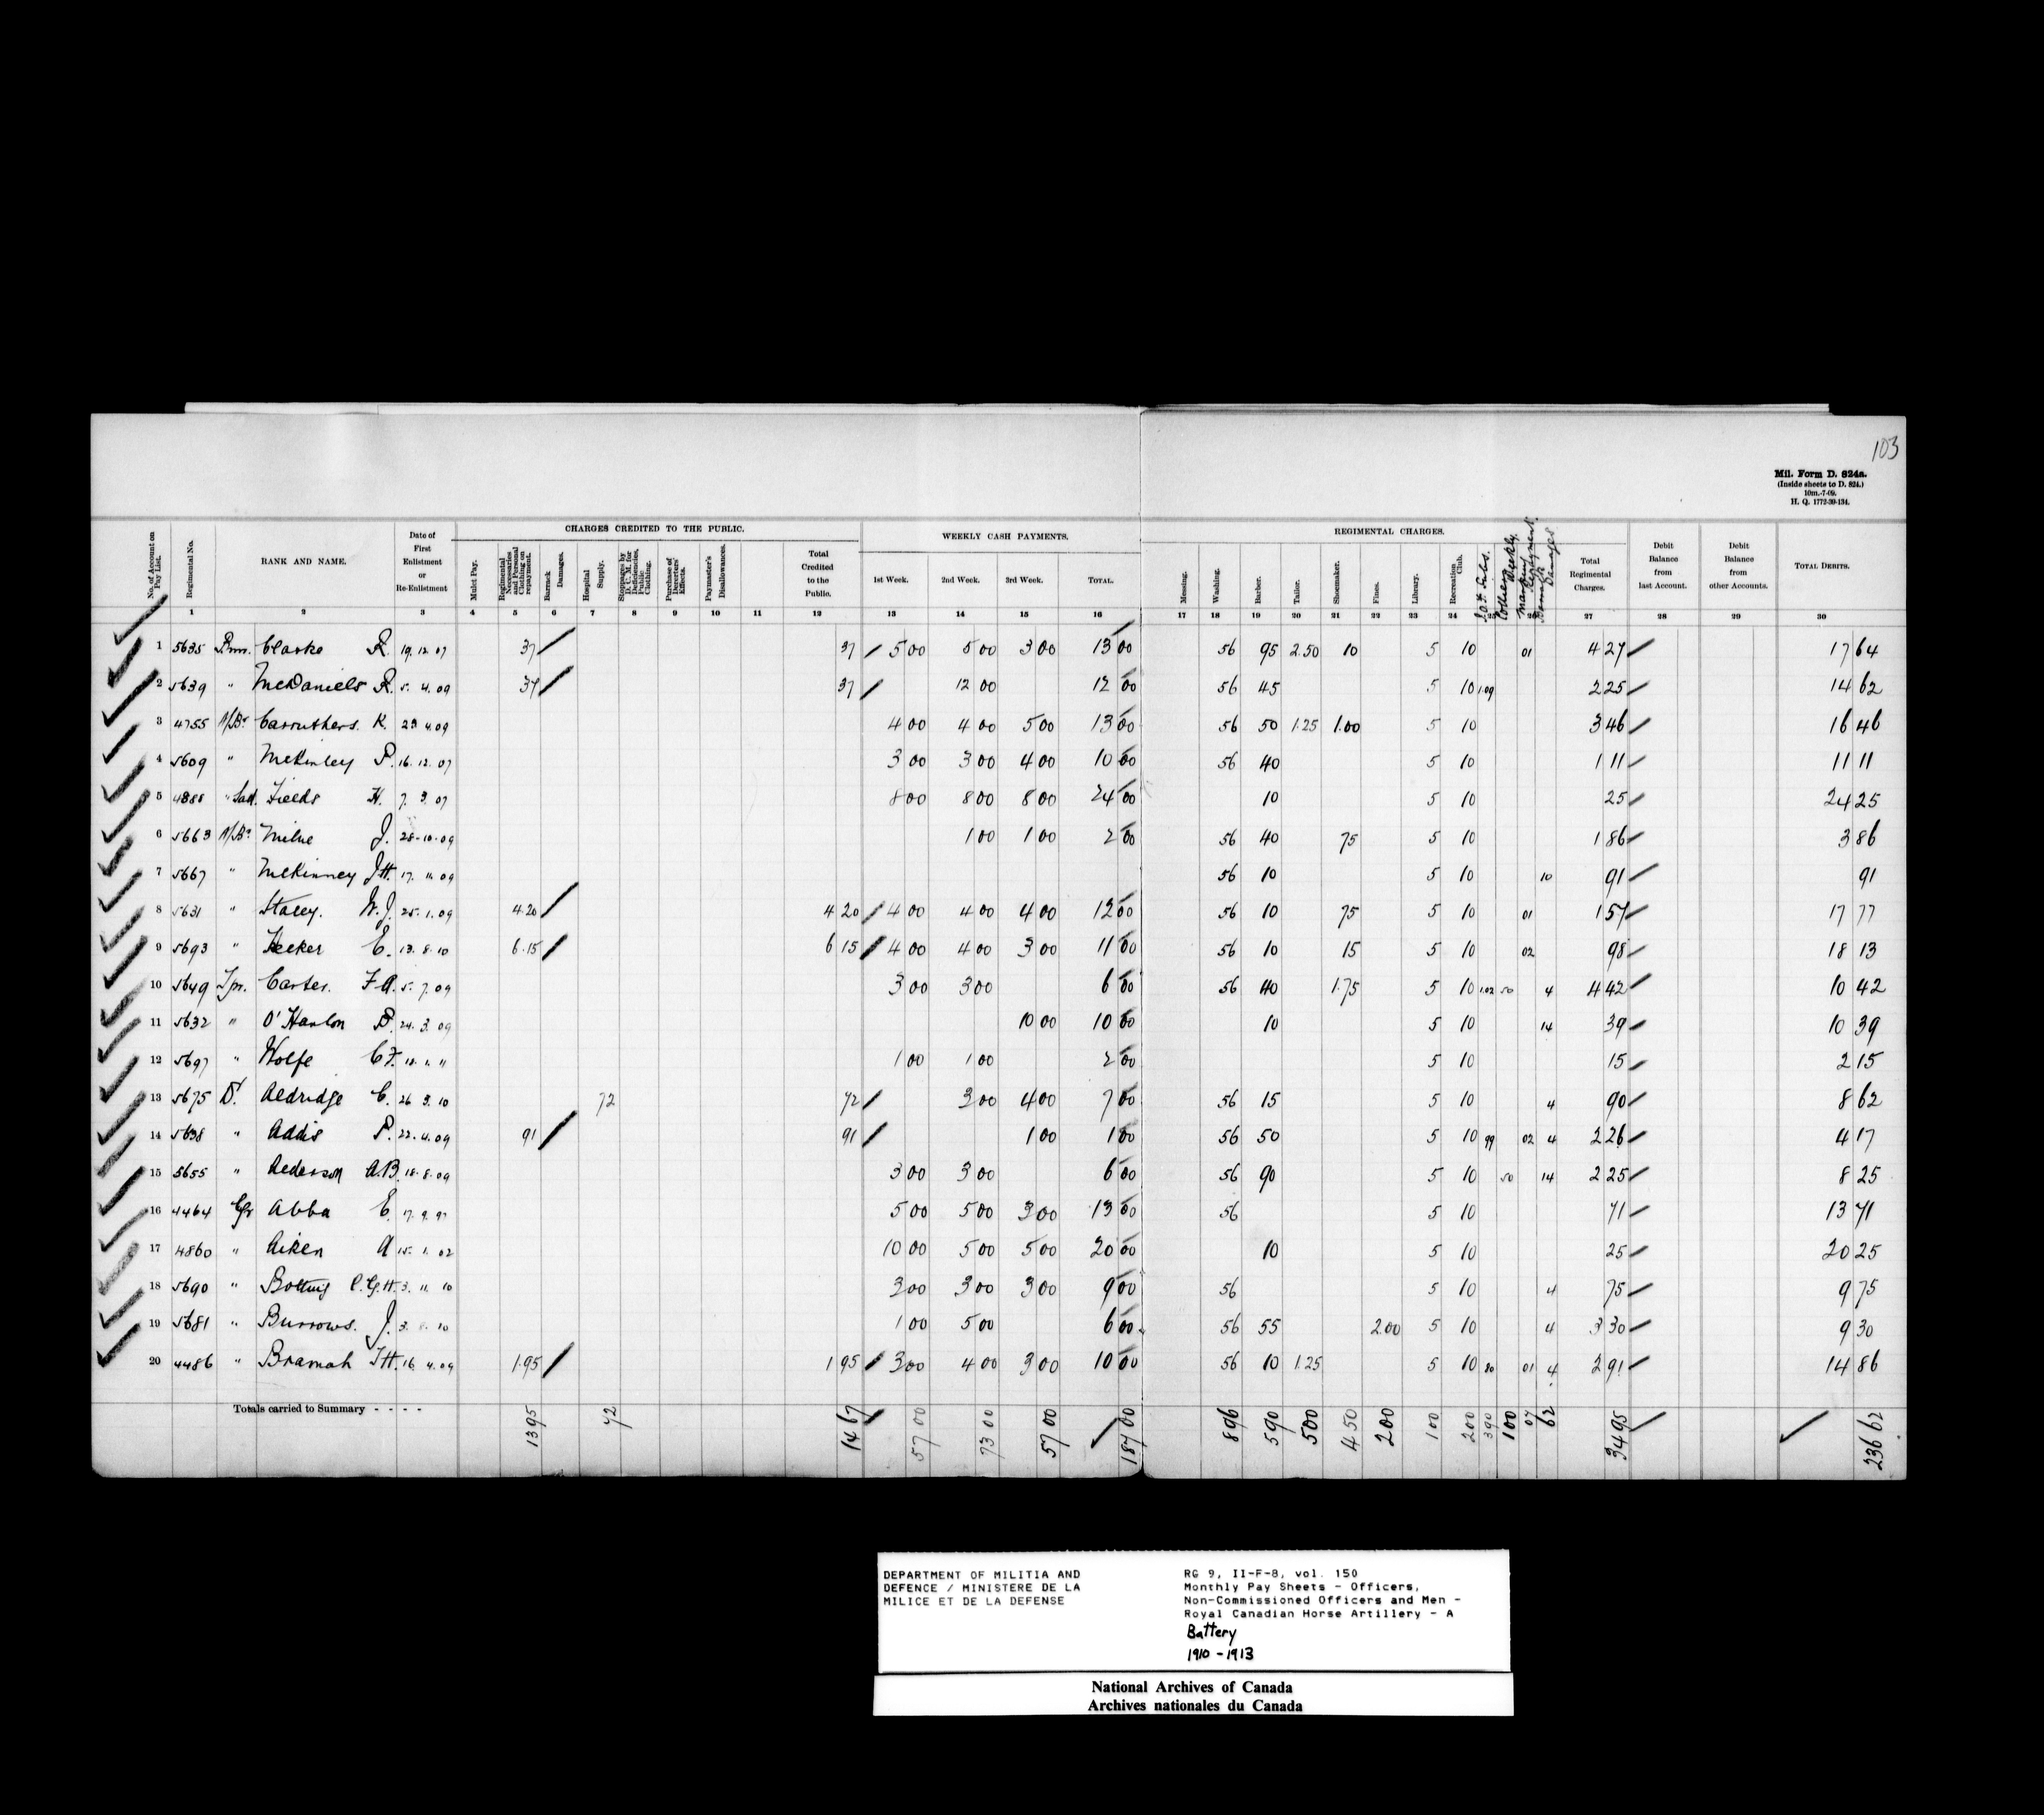 103
Mil. Form D. 824a.
(Inside sheets to D. 824.)
10m.-7-09.
H. Q. 1772-39-134.
No. of Account on Pay List. Regimental No. RANK AND NAME. Date of First Enlistment or Re-Enlistment CHARGES CREDITED TO THE PUBLIC. WEEKLY CASH PAYMENTS. REGIMENTAL CHARGES. Debit Balance from last Account. Debit Balance from other Accounts. TOTAL DEBITS.
Mulct Pay. Regimental Necessaries and Personal Clothing on repayment. Barrack Damages. Hospital Supply. Stoppages by D. C. M. for Deficiencies, Public Clothing. Purchase of Deserters' Effects. Paymaster's Disallowances. Total Credited to the Public. 1st Week. 2nd Week. 3rd Week. TOTAL. Messing. Washing. Barber. Tailor. Shoemaker. Fines. Library. Recreation Club. Weekly. Marking Equipment. Damages Total Regimental Charges.
1 2 3 4 5 6 7 8 9 10 11 12 13 14 15 16 17 18 19 20 21 22 23 24 25 26 27 28 29 30
1 5635 Bmr. Clarke R. 19.12.07 37 37 5 00 5 00 3 00 13 00 56 95 2.50 10 5 10 01 4 27 17 64
2 5639 " McDaniels R. 5.4.09 37 37 12 00 12 00 56 45 5 10 1.09 2 25 14 62
3 4755 A/Br Carruthers. K. 23 4.09 4 00 4 00 5 00 13 00 56 50 1.25 1.00 5 10 3 46 16 46
4 5609 " McKinley P. 16.12.07 3 00 3 00 4 00 10 00 56 40 5 10 1 11 11 11
5 4388 " Sad. Fields H. 7.3.07 8 00 8 00 8 00 24 00 10 5 10 25 24 25
6 5663 A/Br Milne J. 28-10-09 1 00 1 00 2 00 56 40 75 5 10 1 86 3 86
7 5667 " McKinney J.H. 17.11.09 56 10 5 10 10 91 91
8 5631 " Stacey. W.J. 25.1.09 4.20 4 20 4 00 4 00 4 00 12 00 56 10 75 5 10 01 1 57 17 77
9 5693 " Heeker C. 13.8.10 6.15 6 15 4 00 4 00 3 00 11 00 56 10 15 5 10 02 98 18 13
10 5649 Tpr. Carter. F.A. 5.7.09 3 00 3 00 6 00 56 40 1.75 5 10 1.02 50 4 4 42 10 42
11 5632 " O'Hanlon P. 24.3.09 10 00 10 00 10 5 10 14 39 10 39
12 5697 " Wolfe C.F. 18.1.11 1 00 1 00 2 00 5 10 15 2 15
13 5675 Dr. Aldridge C. 26 3.10 72 72 3 00 4 00 7 00 56 15 5 10 4 90 8 62
14 5638 " Addis P. 22.4.09 91 91 1 00 1 00 56 50 5 10 99 02 4 2 26 4 17
15 5655 " Alderson A.B. 18.8.09 3 00 3 00 6 00 56 90 5 10 50 14 2 25 8 25
16 4464 Gr Abba E. 17.9.97 5 00 5 00 3 00 13 00 56 5 10 71 13 71
17 4860 " Aiken A 15.1.02 10 00 5 00 5 00 20 00 10 5 10 25 20 25
18 5690 " Botting C.G.H. 3.11.10 3 00 3 00 3 00 9 00 56 5 10 4 75 9 75
19 5681 " Burrows. J. 3. 10 1 00 5 00 6 00 56 55 2.00 5 10 4 3 30 9 30
20 4486 " Bramah T.H. 16.4.09 1.95 1 95 3 00 4 00 3 00 10 00 56 10 1.25 5 10 80 01 4 2 91 14 86
Totals carried to Summary - - - - 13 95 72 14 67 57 00 73 00 57 00 187 00 8 96 5 90 5 00 4 50 2 00 1 00 2 00 3 90 1 00 07 62 34 95 236 62
DEPARTMENT OF MILITIA AND
DEFENCE / MINISTERE DE LA
MILICE ET DE LA DEFENSE
RG 9, II-F-8, vol. 150
Monthly Pay Sheets - Officers,
Non-Commissioned Officers and Men -
Royal Canadian Horse Artillery - A
Battery
1910 - 1913
National Archives of Canada
Archives nationales du Canada